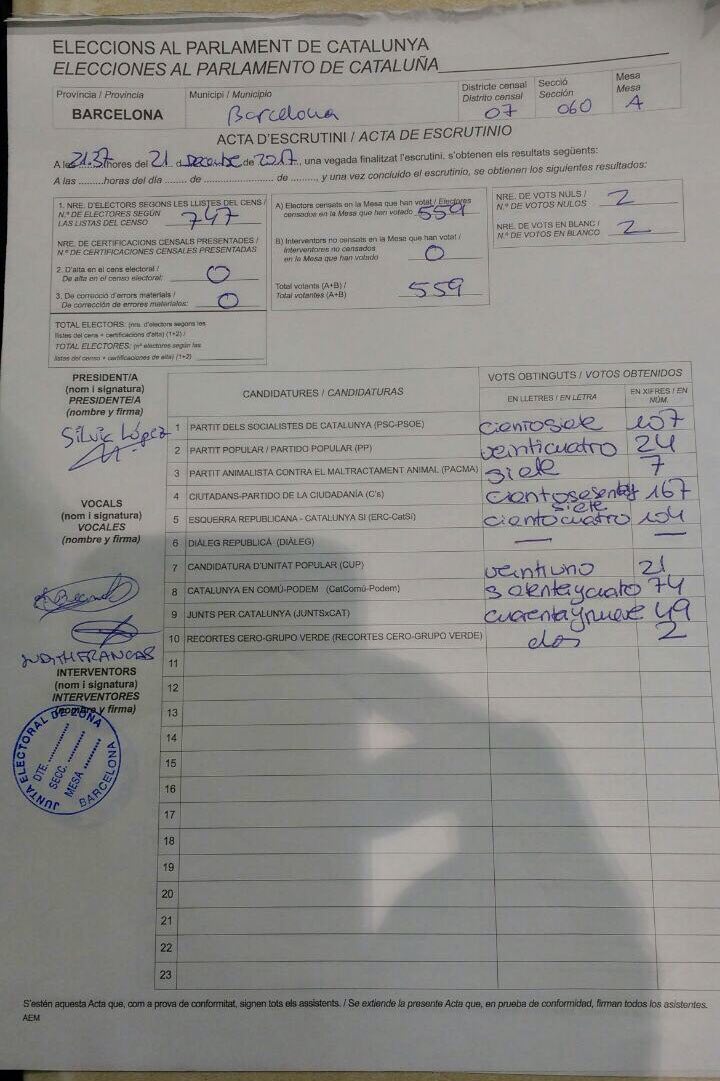 ELECCIONS AL PARLAMENT DE CATALUNYA
ELECCIONES AL PARLAMENTO DE CATALUÑA
Província / Provincia
BARCELONA
Municipi / Municipio
Barcelona
Districte censal
Distrito censal
07
Secció
Sección
060
Mesa
Mesa
A
ACTA D'ESCRUTINI / ACTA DE ESCRUTINIO
A les 21.37 hores del 21 d de 2017, una vegada finalitzat l'escrutini, s'obtenen els resultats següents:
A las .........horas del día ....... de ......................... de ........., y una vez concluido el escrutinio, se obtienen los siguientes resultados:
1. NRE. D'ELECTORS SEGONS LES LLISTES DEL CENS /
N.º DE ELECTORES SEGÚN
LAS LISTAS DEL CENSO
747
NRE. DE CERTIFICACIONS CENSALS PRESENTADES /
N.º DE CERTIFICACIONES CENSALES PRESENTADAS
2. D'alta en el cens electoral /
De alta en el censo electoral:
0
3. De correcció d'errors materials /
De corrección de errores materiales:
0
TOTAL ELECTORS: (nre. d'electors segons les
llistes del cens + certificacions d'alta) (1+2) /
TOTAL ELECTORES: (nº electores según las
listas del censo + certificaciones de alta) (1+2)
A) Electors censats en la Mesa que han votat / Electores
censados en la Mesa que han votado
559
B) Interventors no censats en la Mesa que han votat /
Interventores no censados
en la Mesa que han votado
0
Total votants (A+B) /
Total votantes (A+B)
559
NRE. DE VOTS NULS /
N.º DE VOTOS NULOS
2
NRE. DE VOTS EN BLANC /
N.º DE VOTOS EN BLANCO
2
PRESIDENT/A
(nom i signatura)
PRESIDENTE/A
(nombre y firma)
Silvia López
VOCALS
(nom i signatura)
VOCALES
(nombre y firma)
JUDITH FRANCAS
INTERVENTORS
(nom i signatura)
INTERVENTORES
(nombre y firma)
JUNTA ELECTORAL DE ZONA
BARCELONA
DTE. ........
SECC. ........
MESA ........
CANDIDATURES / CANDIDATURAS
VOTS OBTINGUTS / VOTOS OBTENIDOS
EN LLETRES / EN LETRA
EN XIFRES / EN NÚM.
1 PARTIT DELS SOCIALISTES DE CATALUNYA (PSC-PSOE) cientosiete 107
2 PARTIT POPULAR / PARTIDO POPULAR (PP) veinticuatro 24
3 PARTIT ANIMALISTA CONTRA EL MALTRACTAMENT ANIMAL (PACMA) siete 7
4 CIUTADANS-PARTIDO DE LA CIUDADANÍA (C's) cientosesentay siete 167
5 ESQUERRA REPUBLICANA - CATALUNYA SÍ (ERC-CatSí) cientocuatro 104
6 DIÀLEG REPUBLICÀ (DIÀLEG) — —
7 CANDIDATURA D'UNITAT POPULAR (CUP) veintiuno 21
8 CATALUNYA EN COMÚ-PODEM (CatComú-Podem) 74
9 JUNTS PER CATALUNYA (JUNTSxCAT) cuarentaynueve 49
10 RECORTES CERO-GRUPO VERDE (RECORTES CERO-GRUPO VERDE) dos 2
11
12
13
14
15
16
17
18
19
20
21
22
23
S'estén aquesta Acta que, com a prova de conformitat, signen tots els assistents. / Se extiende la presente Acta que, en prueba de conformidad, firman todos los asistentes.
AEM